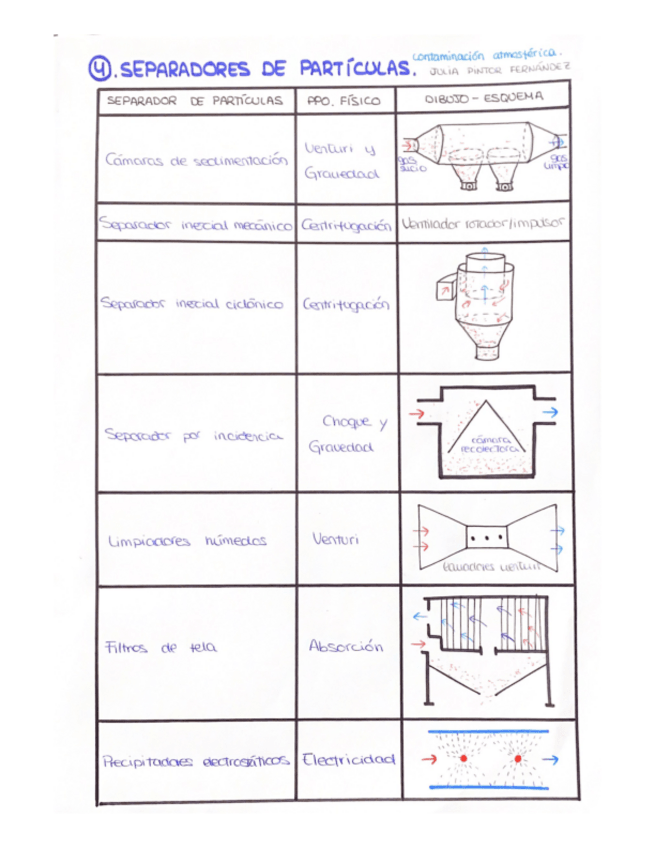 contaminación atmosférica.
4. SEPARADORES DE PARTÍCULAS.
JULIA PINTOR FERNÁNDEZ
SEPARADOR DE PARTÍCULAS
PPO. FÍSICO
DIBUJO - ESQUEMA
Cámaras de sedimentación
Venturi y
Gravedad
gas
sucio
gas
limpio
Separador inercial mecánico
Centrifugación
Ventilador rotador/impulsor
Separador inercial ciclónico
Centrifugación
Separador por incidencia
Choque y
Gravedad
cámara
recolectora
Limpiadores húmedos
Venturi
lavadores venturi
Filtros de tela
Absorción
Precipitadores electrostáticos
Electricidad